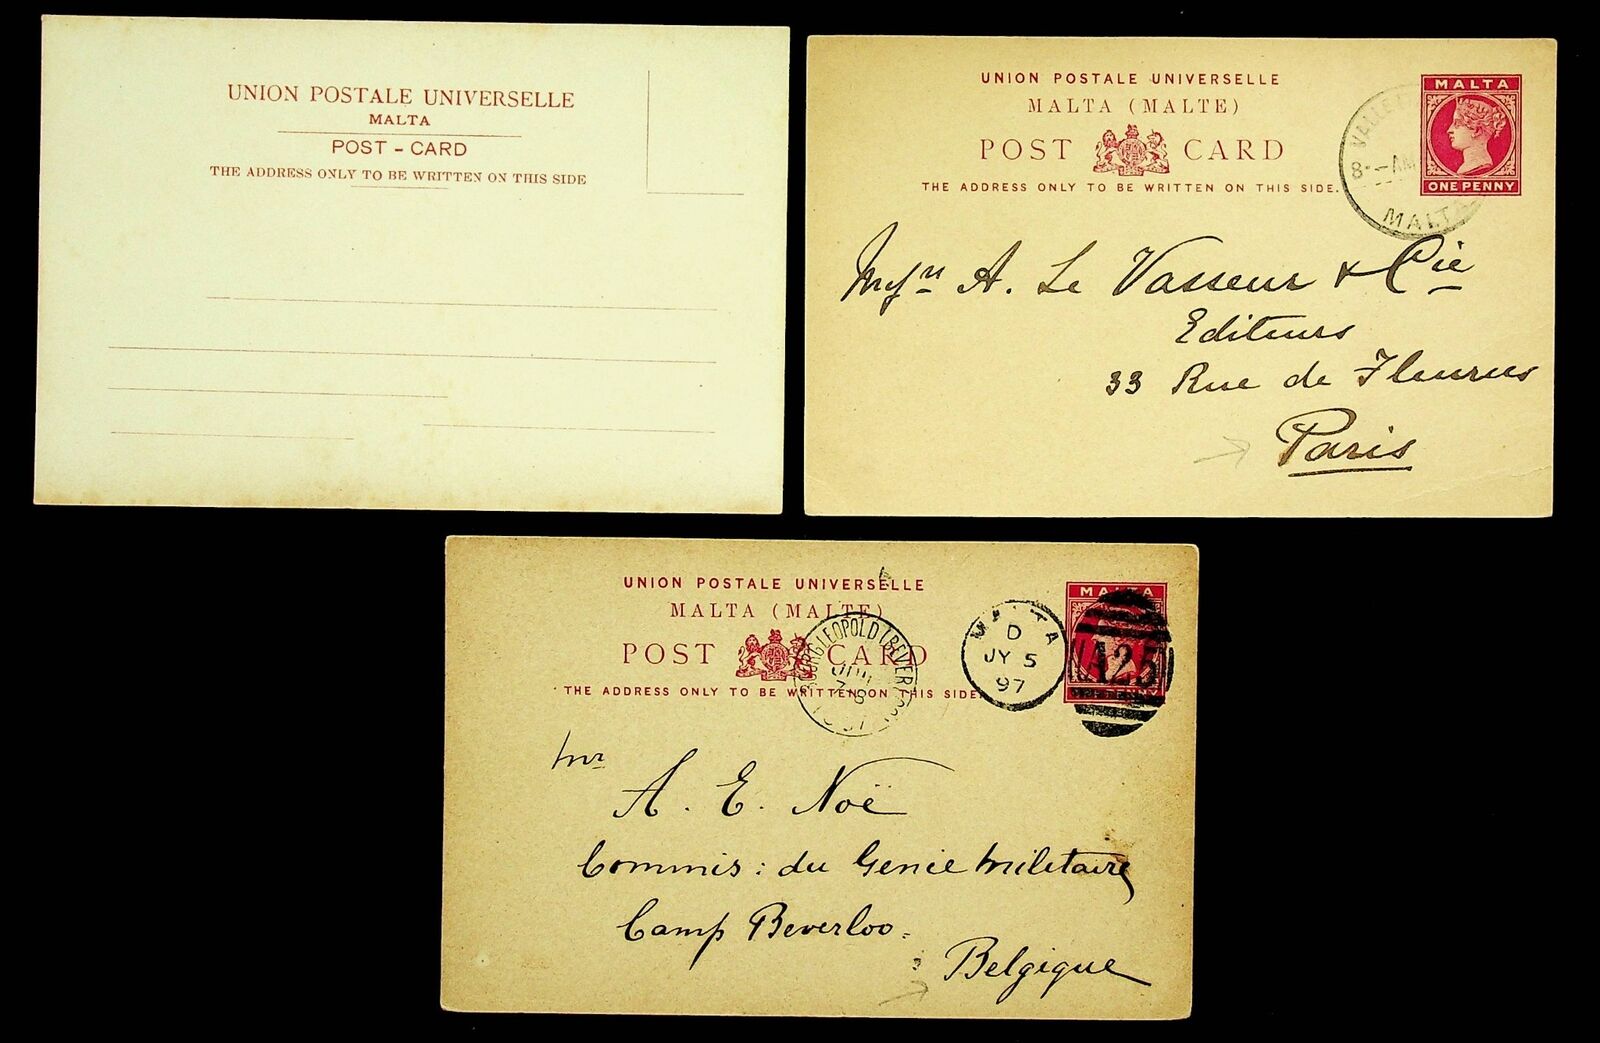 UNION POSTALE UNIVERSELLE
MALTA
POST - CARD
THE ADDRESS ONLY TO BE WRITTEN ON THIS SIDE
UNION POSTALE UNIVERSELLE
MALTA (MALTE)
POST CARD
THE ADDRESS ONLY TO BE WRITTEN ON THIS SIDE.
MALTA
ONE PENNY
8 - AM
MALTA
A. Le Vasseur & Cie
Editeurs
33 Rue de Fleurus
Paris
UNION POSTALE UNIVERSELLE
MALTA (MALTE)
POST CARD
THE ADDRESS ONLY TO BE WRITTEN ON THIS SIDE.
MALTA
MALTA
D
JY 5
97
A25
Mr
A. E. Noë
Commis: du Genie Militaire
Camp Beverloo.
Belgique